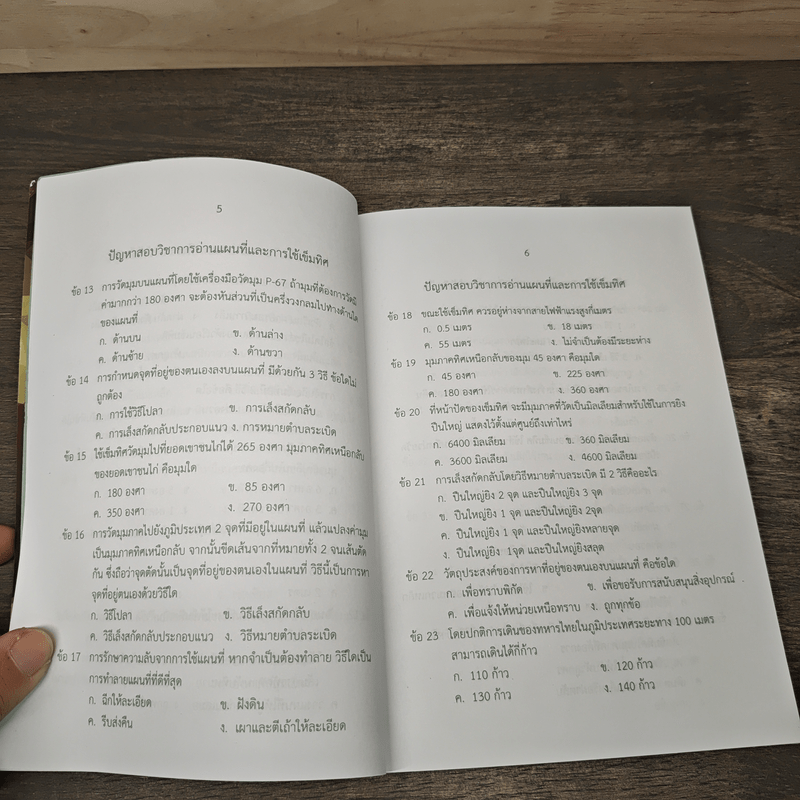 5
ปัญหาสอบวิชาการอ่านแผนที่และการใช้เข็มทิศ
ข้อ 13 การวัดมุมบนแผนที่โดยใช้เครื่องมือวัดมุม P-67 ถ้ามุมที่ต้องการวัดมี
ค่ามากกว่า 180 องศา จะต้องหันส่วนที่เป็นครึ่งวงกลมไปทางด้านใด
ของแผนที่
ก. ด้านบน ข. ด้านล่าง
ค. ด้านซ้าย ง. ด้านขวา
ข้อ 14 การกำหนดจุดที่อยู่ของตนเองลงบนแผนที่ มีด้วยกัน 3 วิธี ข้อใดไม่
ถูกต้อง
ก. การใช้วิธีโปลา ข. การเล็งสกัดกลับ
ค. การเล็งสกัดกลับประกอบแนว ง. การหมายตำบลระเบิด
ข้อ 15 ใช้เข็มทิศวัดมุมไปที่ยอดเขาชนไก่ได้ 265 องศา มุมภาคทิศเหนือกลับ
ของยอดเขาชนไก่ คือมุมใด
ก. 180 องศา ข. 85 องศา
ค. 350 องศา ง. 270 องศา
ข้อ 16 การวัดมุมภาคไปยังภูมิประเทศ 2 จุดที่มีอยู่ในแผนที่ แล้วแปลงค่ามุม
เป็นมุมภาคทิศเหนือกลับ จากนั้นขีดเส้นจากที่หมายทั้ง 2 จนเส้นตัด
กัน ซึ่งถือว่าจุดตัดนั้นเป็นจุดที่อยู่ของตนเองในแผนที่ วิธีนี้เป็นการหา
จุดที่อยู่ตนเองด้วยวิธีใด
ก. วิธีโปลา ข. วิธีเล็งสกัดกลับ
ค. วิธีเล็งสกัดกลับประกอบแนว ง. วิธีหมายตำบลระเบิด
ข้อ 17 การรักษาความลับจากการใช้แผนที่ หากจำเป็นต้องทำลาย วิธีใดเป็น
การทำลายแผนที่ที่ดีที่สุด
ก. ฉีกให้ละเอียด ข. ฝังดิน
ค. รีบส่งคืน ง. เผาและตีเถ้าให้ละเอียด
6
ปัญหาสอบวิชาการอ่านแผนที่และการใช้เข็มทิศ
ข้อ 18 ขณะใช้เข็มทิศ ควรอยู่ห่างจากสายไฟฟ้าแรงสูงกี่เมตร
ก. 0.5 เมตร ข. 18 เมตร
ค. 55 เมตร ง. ไม่จำเป็นต้องมีระยะห่าง
ข้อ 19 มุมภาคทิศเหนือกลับของมุม 45 องศา คือมุมใด
ก. 45 องศา ข. 225 องศา
ค. 180 องศา ง. 360 องศา
ข้อ 20 ที่หน้าปัดของเข็มทิศ จะมีมุมภาคที่วัดเป็นมิลเลียมสำหรับใช้ในการยิง
ปืนใหญ่ แสดงไว้ตั้งแต่ศูนย์ถึงเท่าไหร่
ก. 6400 มิลเลียม ข. 360 มิลเลียม
ค. 3600 มิลเลียม ง. 4600 มิลเลียม
ข้อ 21 การเล็งสกัดกลับโดยวิธีหมายตำบลระเบิด มี 2 วิธีคืออะไร
ก. ปืนใหญ่ยิง 2 จุด และปืนใหญ่ยิง 3 จุด
ข. ปืนใหญ่ยิง 1 จุด และปืนใหญ่ยิง 2 จุด
ค. ปืนใหญ่ยิง 1 จุด และปืนใหญ่ยิงหลายจุด
ง. ปืนใหญ่ยิง 1จุด และปืนใหญ่ยิงสลุต
ข้อ 22 วัตถุประสงค์ของการหาที่อยู่ของตนเองบนแผนที่ คือข้อใด
ก. เพื่อทราบพิกัด ข. เพื่อขอรับการสนับสนุนสิ่งอุปกรณ์
ค. เพื่อแจ้งให้หน่วยเหนือทราบ ง. ถูกทุกข้อ
ข้อ 23 โดยปกติการเดินของทหารไทยในภูมิประเทศระยะทาง 100 เมตร
สามารถเดินได้กี่ก้าว
ก. 110 ก้าว ข. 120 ก้าว
ค. 130 ก้าว ง. 140 ก้าว